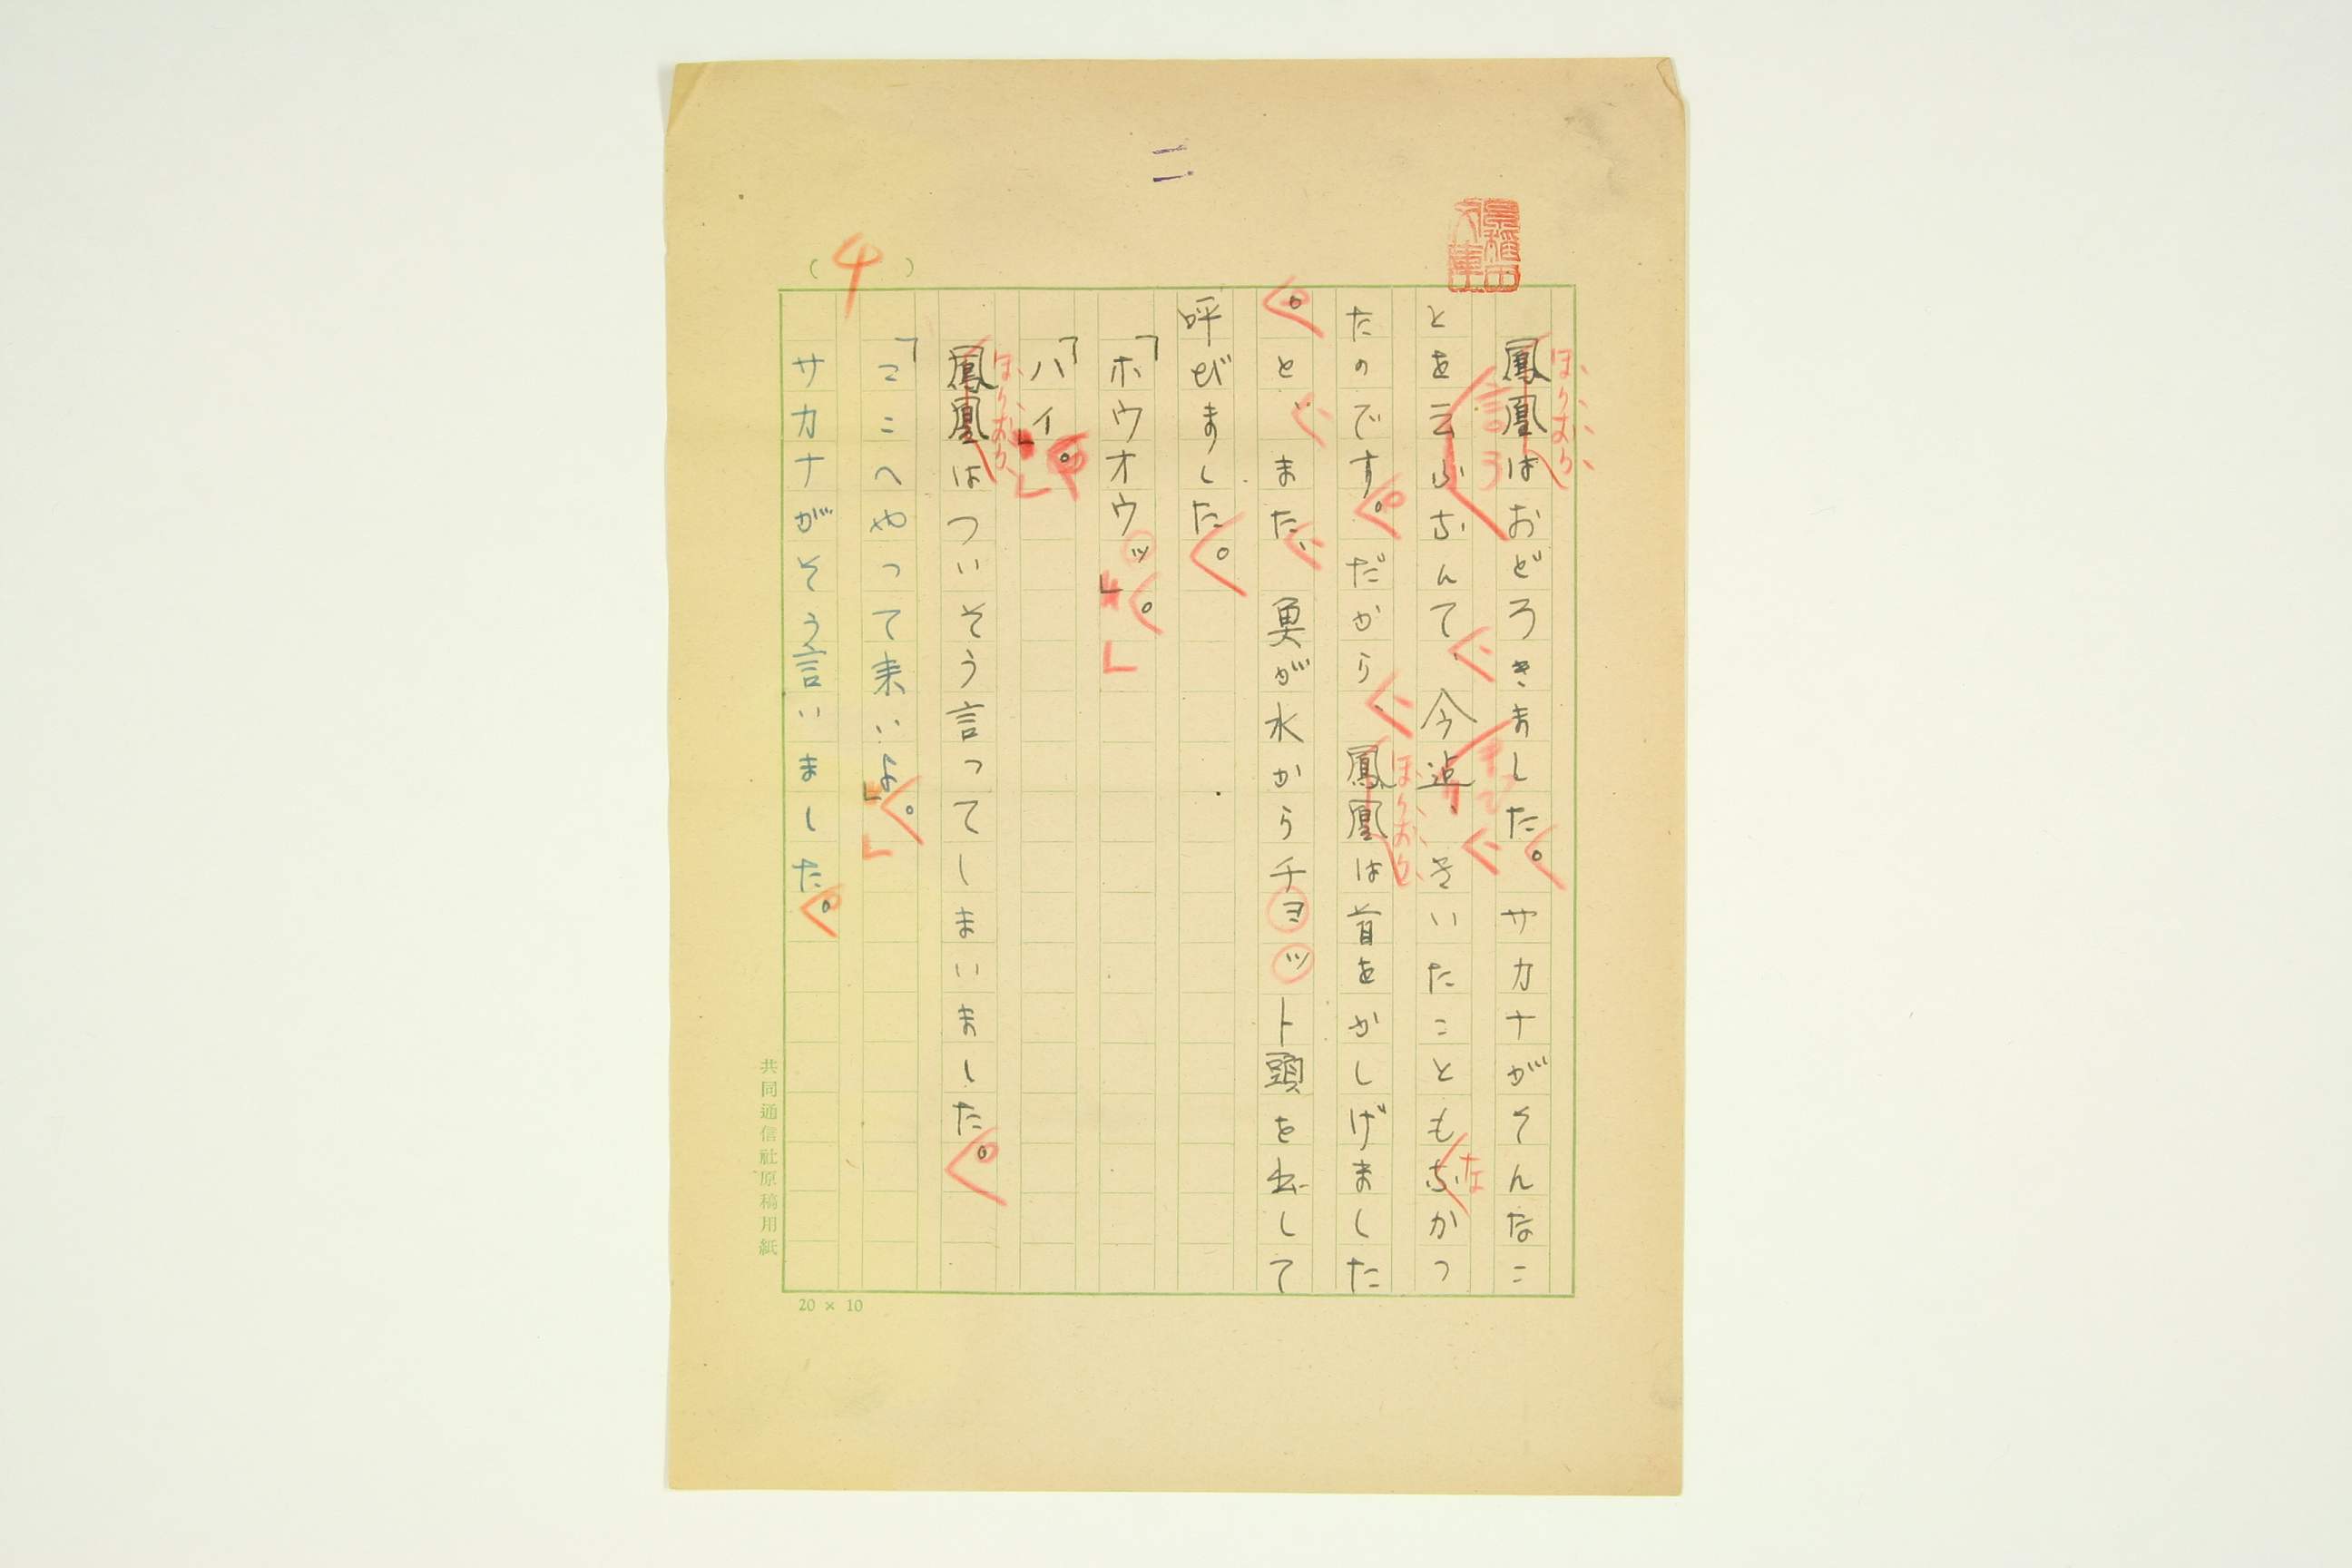 二
(4)
鳳凰はおどろきました。サカナがそんなこ
ほうおう
とを云ふなんて、今迄、きいたこともなかつ
言う
まで
な
たのです。だから、鳳凰は首をかしげました
ほうおう
。と、また、魚が水からチョット頭を出して
呼びました。
「ホウオウッ。」
「ハイ。」
鳳凰はついそう言ってしまいました。
ほうおう
「こゝへやって来いよ。」
サカナがそう言いました。
共同通信社原稿用紙
20 × 10